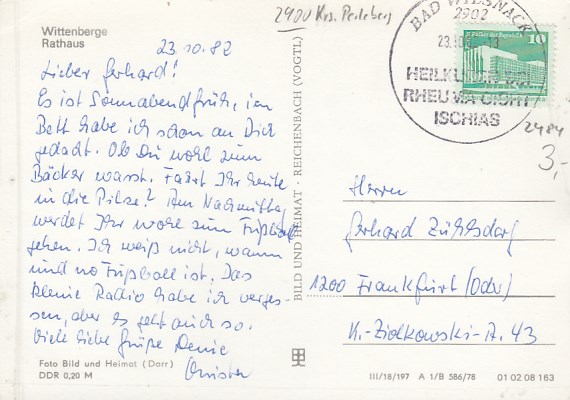 Wittenberge
Rathaus
23.10.82
Lieber Gerhard!
Es ist Sonnabendfrüh, im
Bett habe ich schon an Dich
gedacht. Ob Du wohl zum
Bäcker warst. Fahrt Ihr heute
in die Pilze? Am Nachmittag
werdet Ihr wohl zum Fußball
gehen. Ich weiß nicht, wann
und wo Fußball ist. Das
kleine Radio habe ich verges-
sen, aber es geht auch so.
Viele liebe Grüße Deine
Foto Bild und Heimat (Darr)
DDR 0,20 M
BILD UND HEIMAT · REICHENBACH (VOGTL)
2900 Krs. Perleberg
BAD WILSNACK
2902
23.10.
HEILKUREN BEI
RHEUMA GICHT
ISCHIAS
10
2484
3,-
Herrn
Gerhard Zühlsdorf
1200 Frankfurt (Oder)
K.-Ziolkowski-A. 43
III/18/197 A 1/B 586/78 01 02 08 163